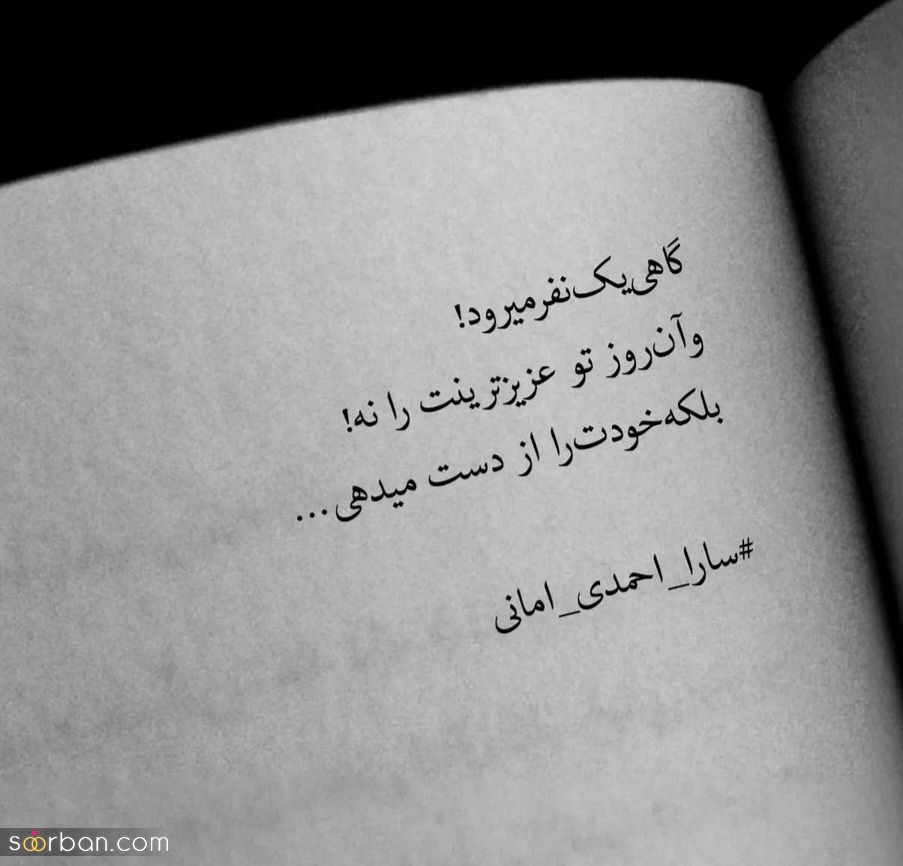 گاهی‌یک‌نفرمیرود!
وآن‌روز تو عزیزترینت را نه!
بلکه‌خودت‌را از دست میدهی...
#سارا_احمدی_امانی
soorban.com